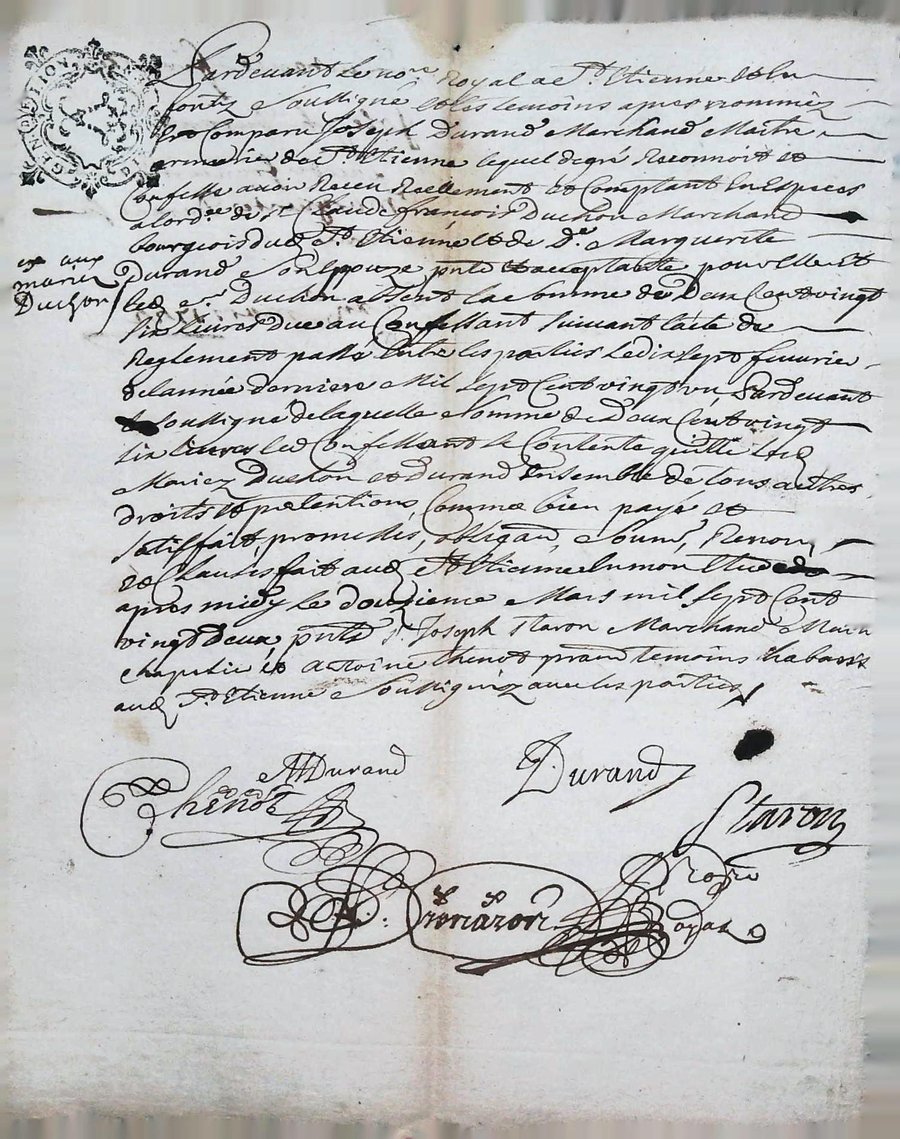 GEN DE LION
Pardevant Le no.re Royal a St Etienne Et En
forest Soussigné Et Les temoins apres nommez
Est Comparu Joseph Durand Marchand Maitre
armurier de St Etienne lequel degré Reconnoit et
Confesse avoir Receu Réellement et Comptant En Especes
alord.re de Sr Claude françois Duchon Marchand
bourgeois dud St Etienne et de De Marguerite
Durand Son Epouze pnte et acceptante pour Elle Et
led Sr Duchon absent la Somme de Deux Cent vingt
Six Livres due au Confessant suivant lacte de
Reglement passé Entre les parties Le dix sept fevrier
de lannée derniere Mil sept Cent vingt un Pardevant
Le soussigné de laquelle Somme de Deux Cent vingt
six livres led Confessant Se Contente quitte lesd
Mariez Duchon et durand Ensemble de tous autres
droits et pretentions, Comme bien payé et
satisfait, promesses, obligaõn, Soumõn, Renon,
et Clauses fait aud St Etienne En mon Etude
apres midy le douzieme Mars mil sept Cent
vingt deux, pnts Sr Joseph Staron Marchand Mtre
chapelier et antoine Chenot praticien temoins habitants
aud St Etienne Soussignez avec les parties
aux
mariez
Duchon
MDurand
Durand
Chenot
Staron
frenazon
No.re
Royal